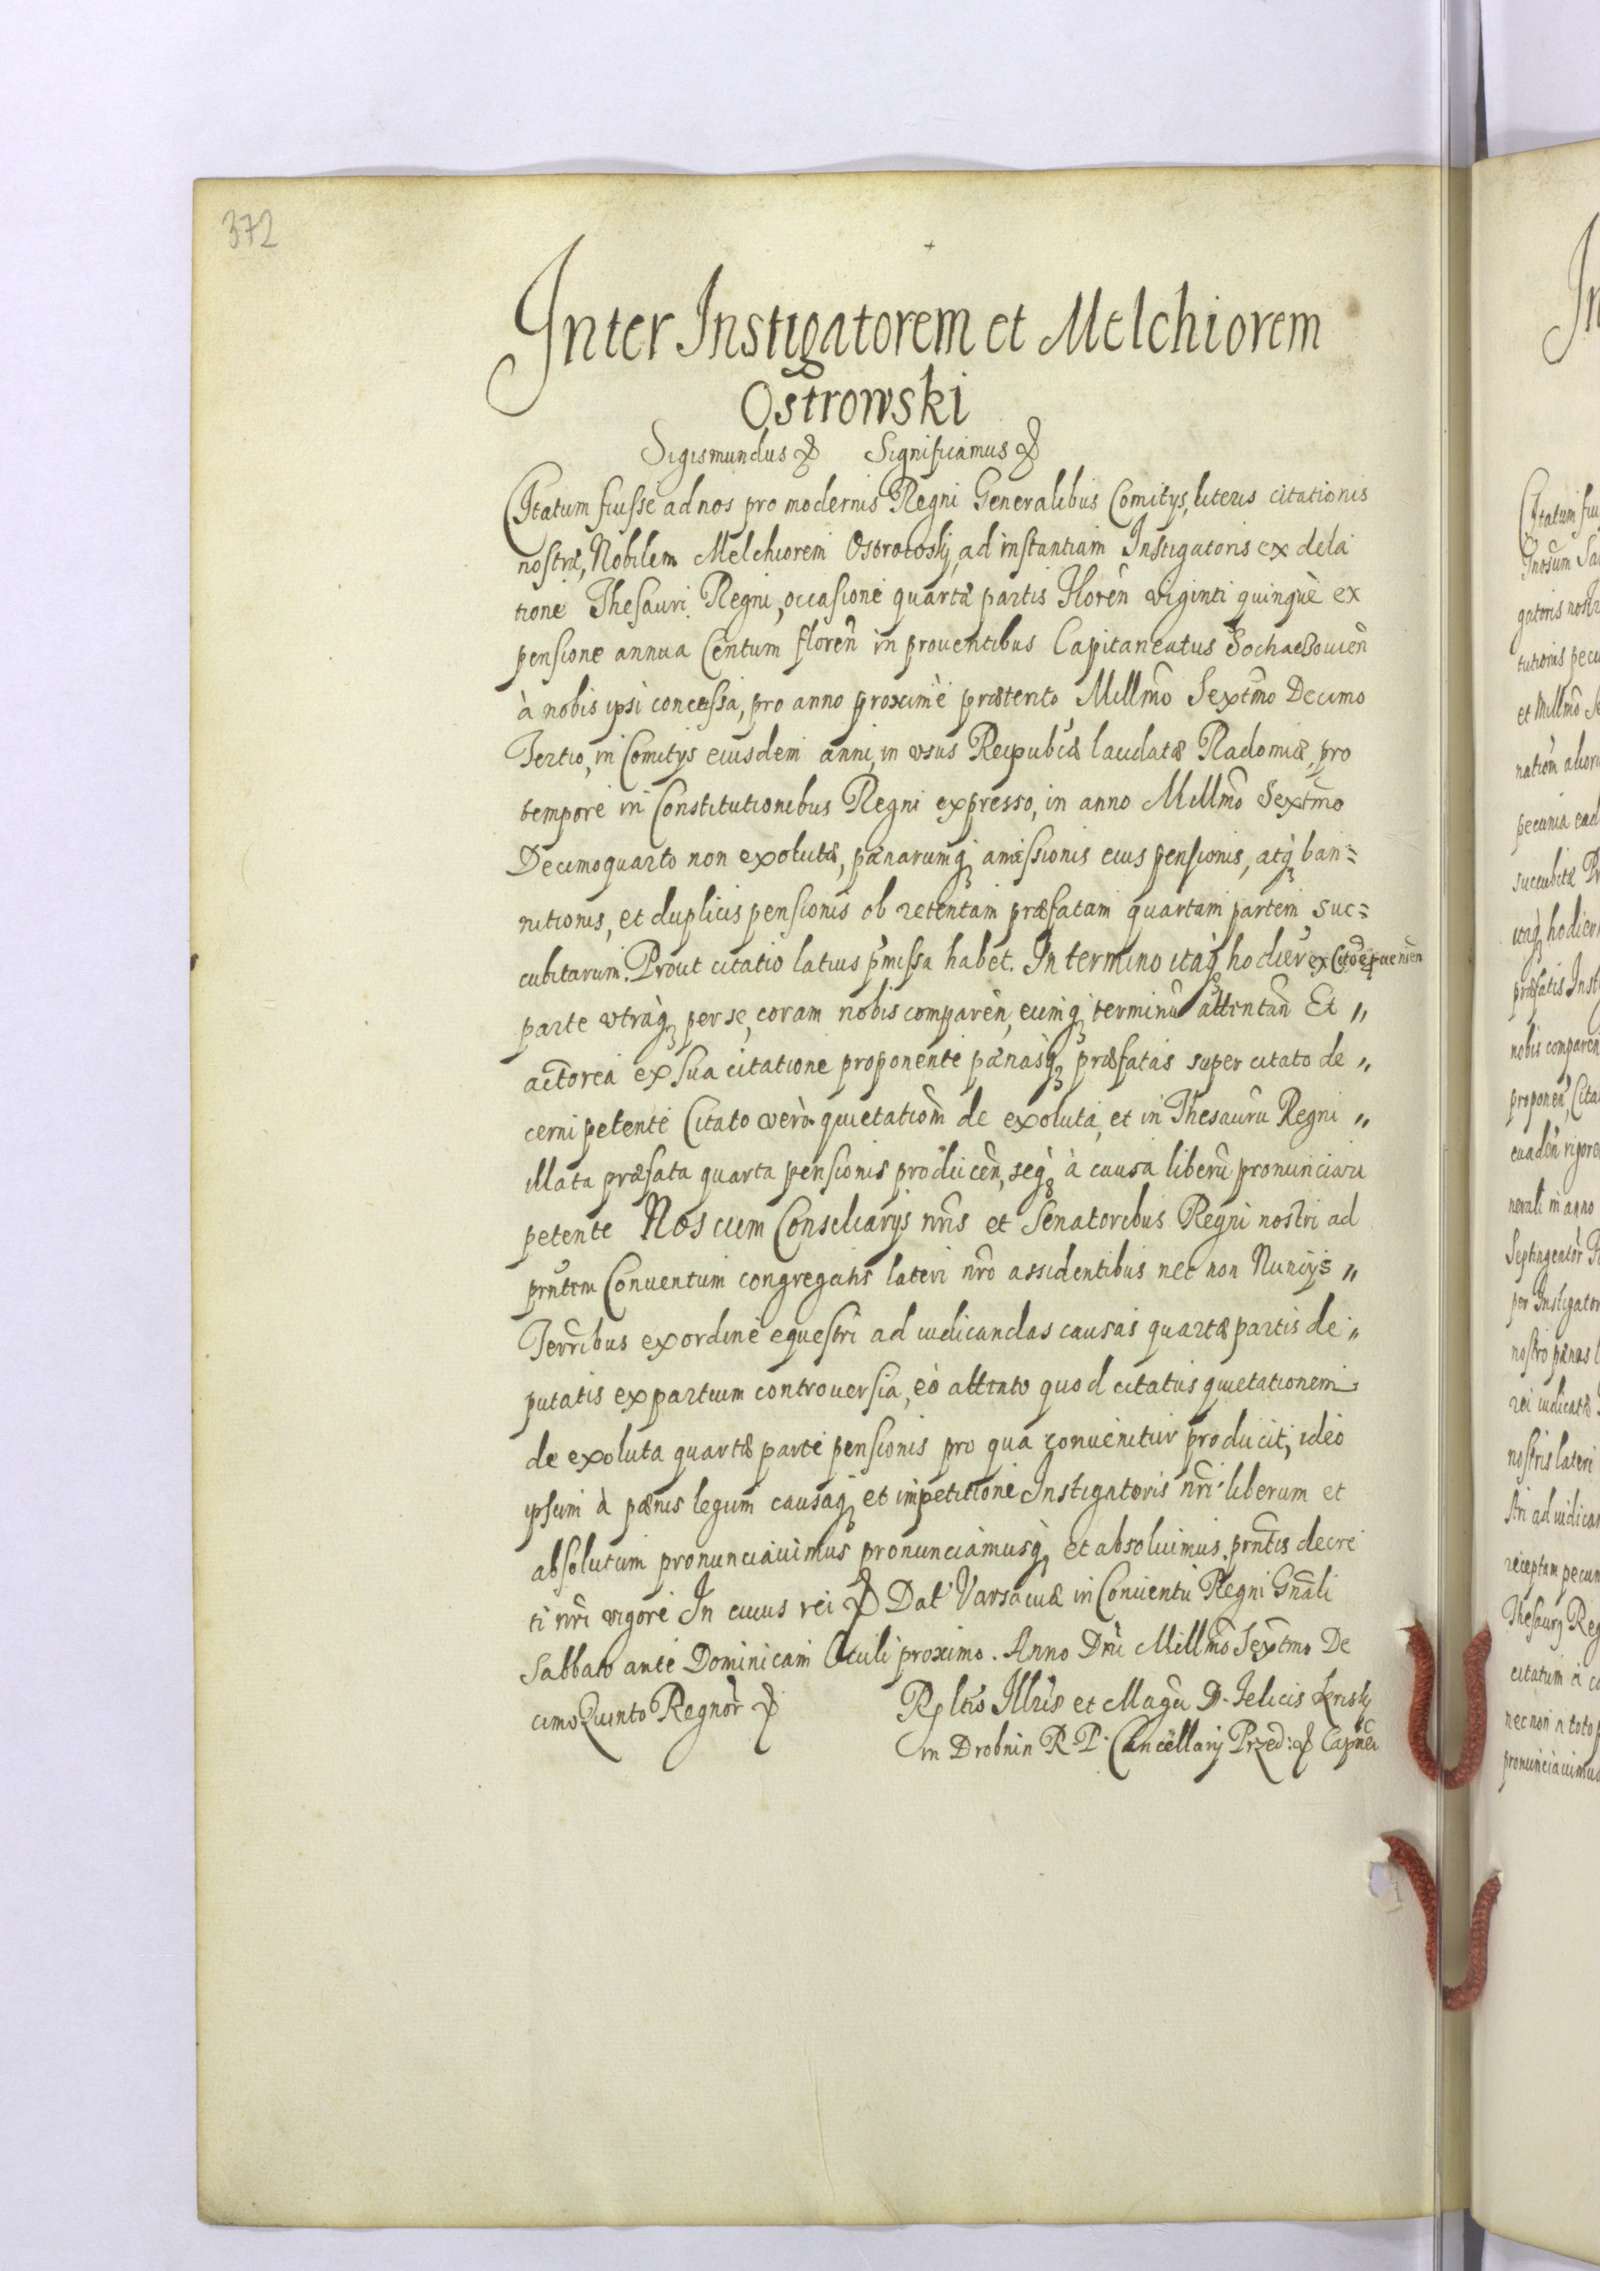 372
Inter Instigatorem et Melchiorem
Ostrowski
Sigismundus & Significamus &
Citatum fuisse ad nos pro modernis Regni Generalibus Comitijs, literis citationis
nostræ, Nobilem Melchiorem Ostrowskj, ad instantiam Instigatoris ex dela
tione Thesauri Regni, occasione quartæ partis Floren̄ viginti quinque ex
pensione annua Centum floren̄ in prouentibus Capitaneatus Sochaczouien̄
à nobis ipsi concessa, pro anno proximè præterito Millm̄o Sextm̄o Decimo
Tertio, in Comitijs eiusdem anni, in vsus Reipub͠cæ laudatæ Radomiæ, pro
tempore in Constitutionibus Regni expresso, in anno Millm̄o Sextm̄o
Decimoquarto non exolutæ, pænarumq́ amissionis eius pensionis, atq́ ban=
nitionis, et duplicis pensionis ob retentam præfatam quartam partem suc=
cubitarum. Prout citatio latius p͠missa habet. In termino itaq́ hodier̄ ex Cito͠e prouenien̄
parte vtràq́ per se, coram nobis comparen̄, eumq́ terminū attentan̄ Et „
actorea ex sua citatione proponente pænasq́ præfatas super citato de „
cerni petente Citato verò quietatiōm de exoluta, et in Thesaurū Regni „
illata præfata quarta pensionis producen̄, seq́ à causa liberū pronunciari
petente Nos cum Consiliarijs nr̄is et Senatoribus Regni nostri ad
prn̄tem Conuentum congregatis lateri nr̄o assidentibus nec non Nuncijs „
Terr̄ibus ex ordine equestri ad iudicandas causas quartæ partis de „
putatis ex partium controuersia, eò attento quod citatus quietationem
de exoluta quartæ parte pensionis pro qua conuenitur producit, ideo
ipsum à pænis legum causaq́ et impetitione Instigatoris nr̄i liberum et
absolutum pronunciauimus pronunciamusq́ et absoluimus. prn̄tis decre
ti nr̄i vigore In cuius rei & Dat̄ Varsauiæ in Conuentu Regni Gn̄ali
Sabbato ante Dominicam Oculi proximo. Anno Dn̄i Millm̄o Sextm̄o De
cimo Quinto Regnor̄ &
Rel̄tio Ill̄ris et Magn̄ D. Felicis Kriskj
in Drobnin R. P. Cancellarij Przed: & Capn̄ei